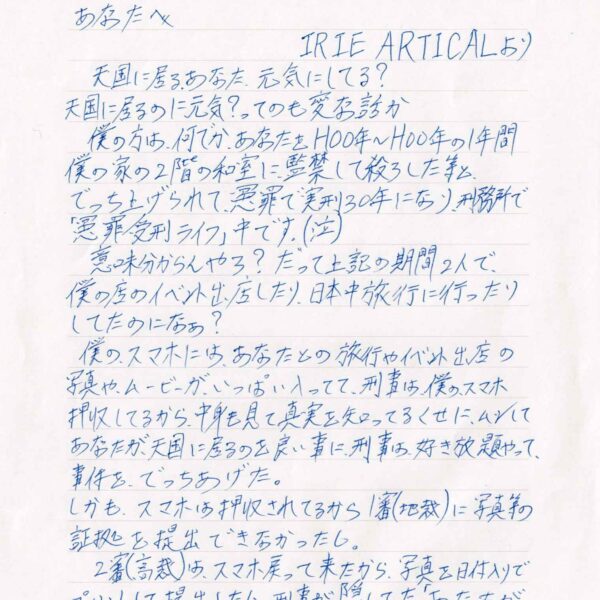 あなたへ
IRIE ARTICALより
天国に居る、あなた、元気にしてる?
天国に居るのに元気?ってのも変な話か
僕の方は、何でか、あなたをH00年〜H00年の1年間
僕の家の2階の和室に監禁して殺ろした等と、
でっち上げられて、冤罪で実刑30年になり、刑務所で
「冤罪受刑ライフ」中です。(泣)
意味分からんやろ?だって上記の期間2人で、
僕の店のイベント出店したり、日本中旅行に行ったり
してたのになぁ?
僕の、スマホには、あなたとの旅行やイベント出店の
写真や、ムービーが、いっぱい入ってて、刑事は、僕のスマホ
押収してるから、中身も見て真実を知ってるくせに、ムシして
あなたが天国に居るのを良い事に、刑事は、好き放題やって、
事件を、でっちあげた。
しかも、スマホは押収されてるから1審(地裁)に写真等の
証拠を提出できなかったし。
2審(高裁)は、スマホ戻って来たから、写真を日付入りで
プリントして提出したら、刑事が隠してた「あなたが